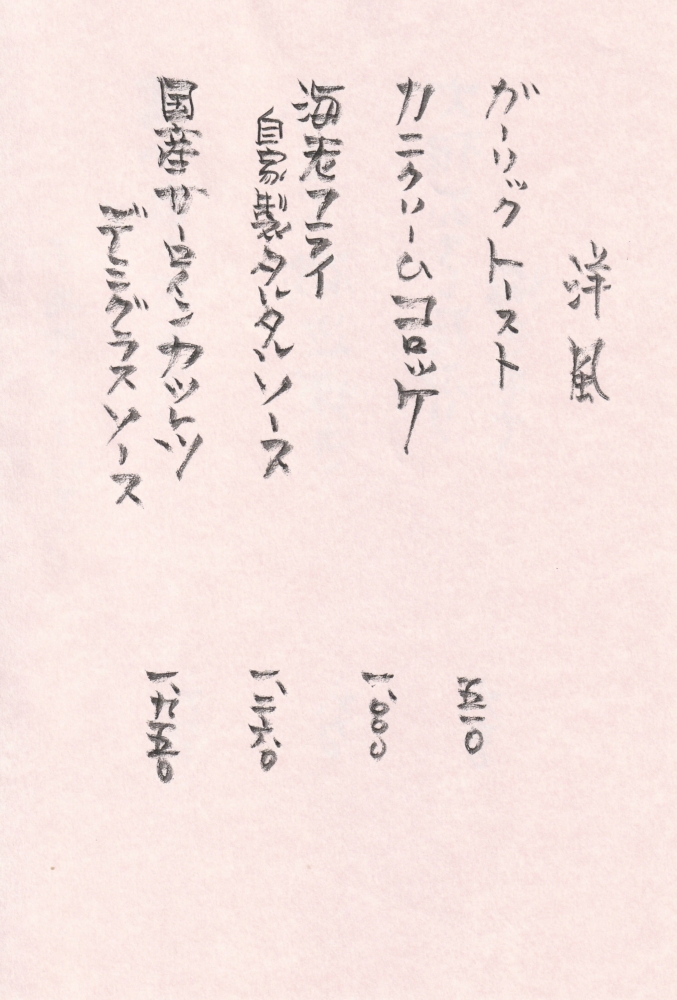 洋風
ガーリックトースト
五一〇
カニクリームコロッケ
一、〇〇〇
海老フライ
自家製タルタルソース
一、二六〇
国産サーロインカツレツ
デミグラスソース
一、九五〇